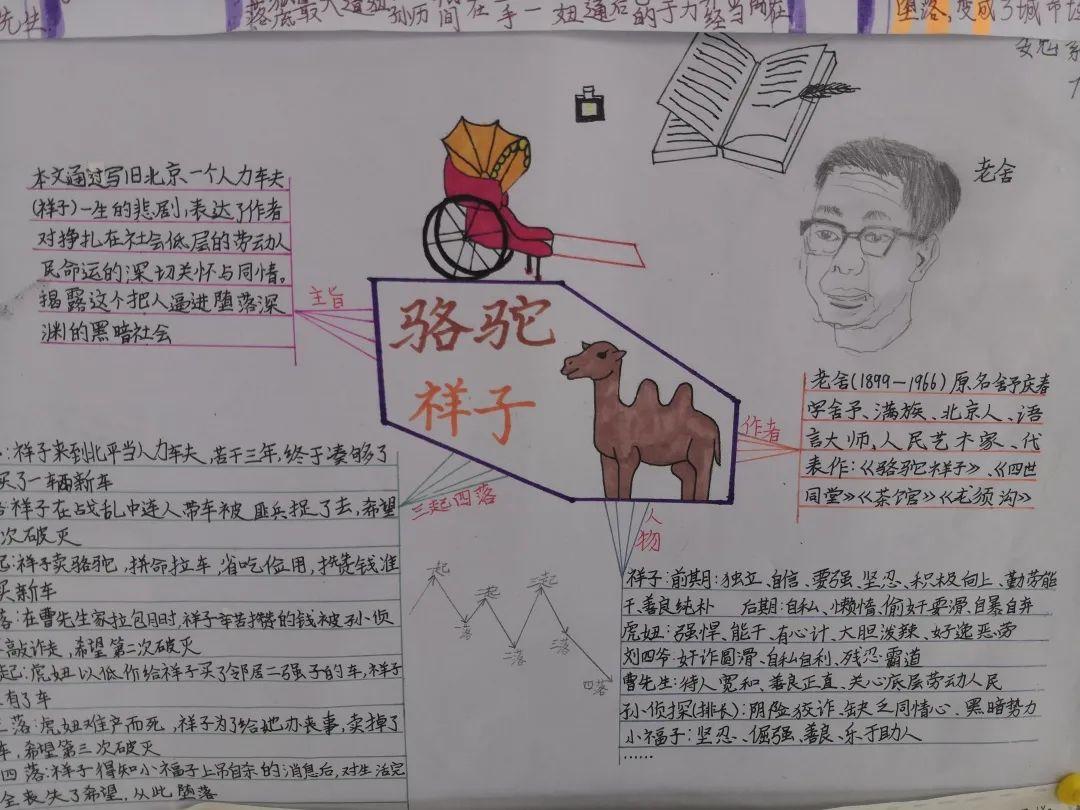 先生
堕落,变成了城市垃
老舍
本文通过写旧北京一个人力车夫
(祥子)一生的悲剧,表达了作者
对挣扎在社会低层的劳动人
民命运的深切关怀与同情。
揭露这个把人逼进堕落深
渊的黑暗社会
主旨
骆驼
祥子
作者
老舍(1899—1966)原名舒庆春
字舍予、满族、北京人、语
言大师,人民艺术家、代
表作:《骆驼祥子》、《四世
同堂》《茶馆》《龙须沟》
三起四落
:祥子来到北平当人力车夫,苦干三年,终于凑够了
买了一辆新车
祥子在战乱中连人带车被匪兵捉了去,希望
次破灭
起:祥子卖骆驼,拼命拉车,省吃俭用,攒钱准
买新车
落:在曹先生家拉包月时,祥子辛苦攒的钱被孙侦
敲诈走,希望第二次破灭
起:虎妞以低价给祥子买了邻居二强子的车,祥子
有了车
三落:虎妞难产而死,祥子为了给她办丧事,卖掉了
车,希望第三次破灭
四落:祥子得知小福子上吊自杀的消息后,对生活完
全丧失了希望,从此堕落
一起
一落
二起
二落
三起
三落
四落
人物
祥子:前期:独立、自信、要强、坚忍、积极向上、勤劳能
干、善良纯朴 后期:自私、懒惰、偷奸耍滑、自暴自弃
虎妞:强悍、能干、有心计、大胆泼辣、好逸恶劳
刘四爷:奸诈圆滑、自私自利、残忍霸道
曹先生:待人宽和、善良正直、关心底层劳动人民
孙侦探(排长):阴险狡诈、缺乏同情心、黑暗势力
小福子:坚忍、倔强、善良、乐于助人
……